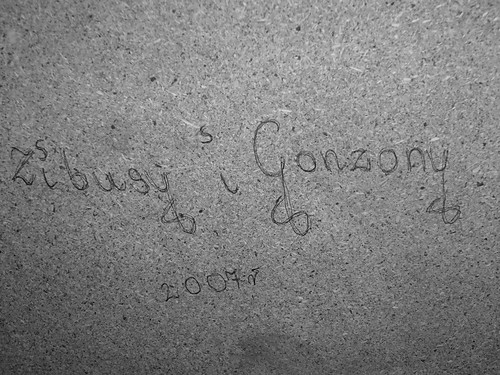 Zibusy i Gonzony
2007r